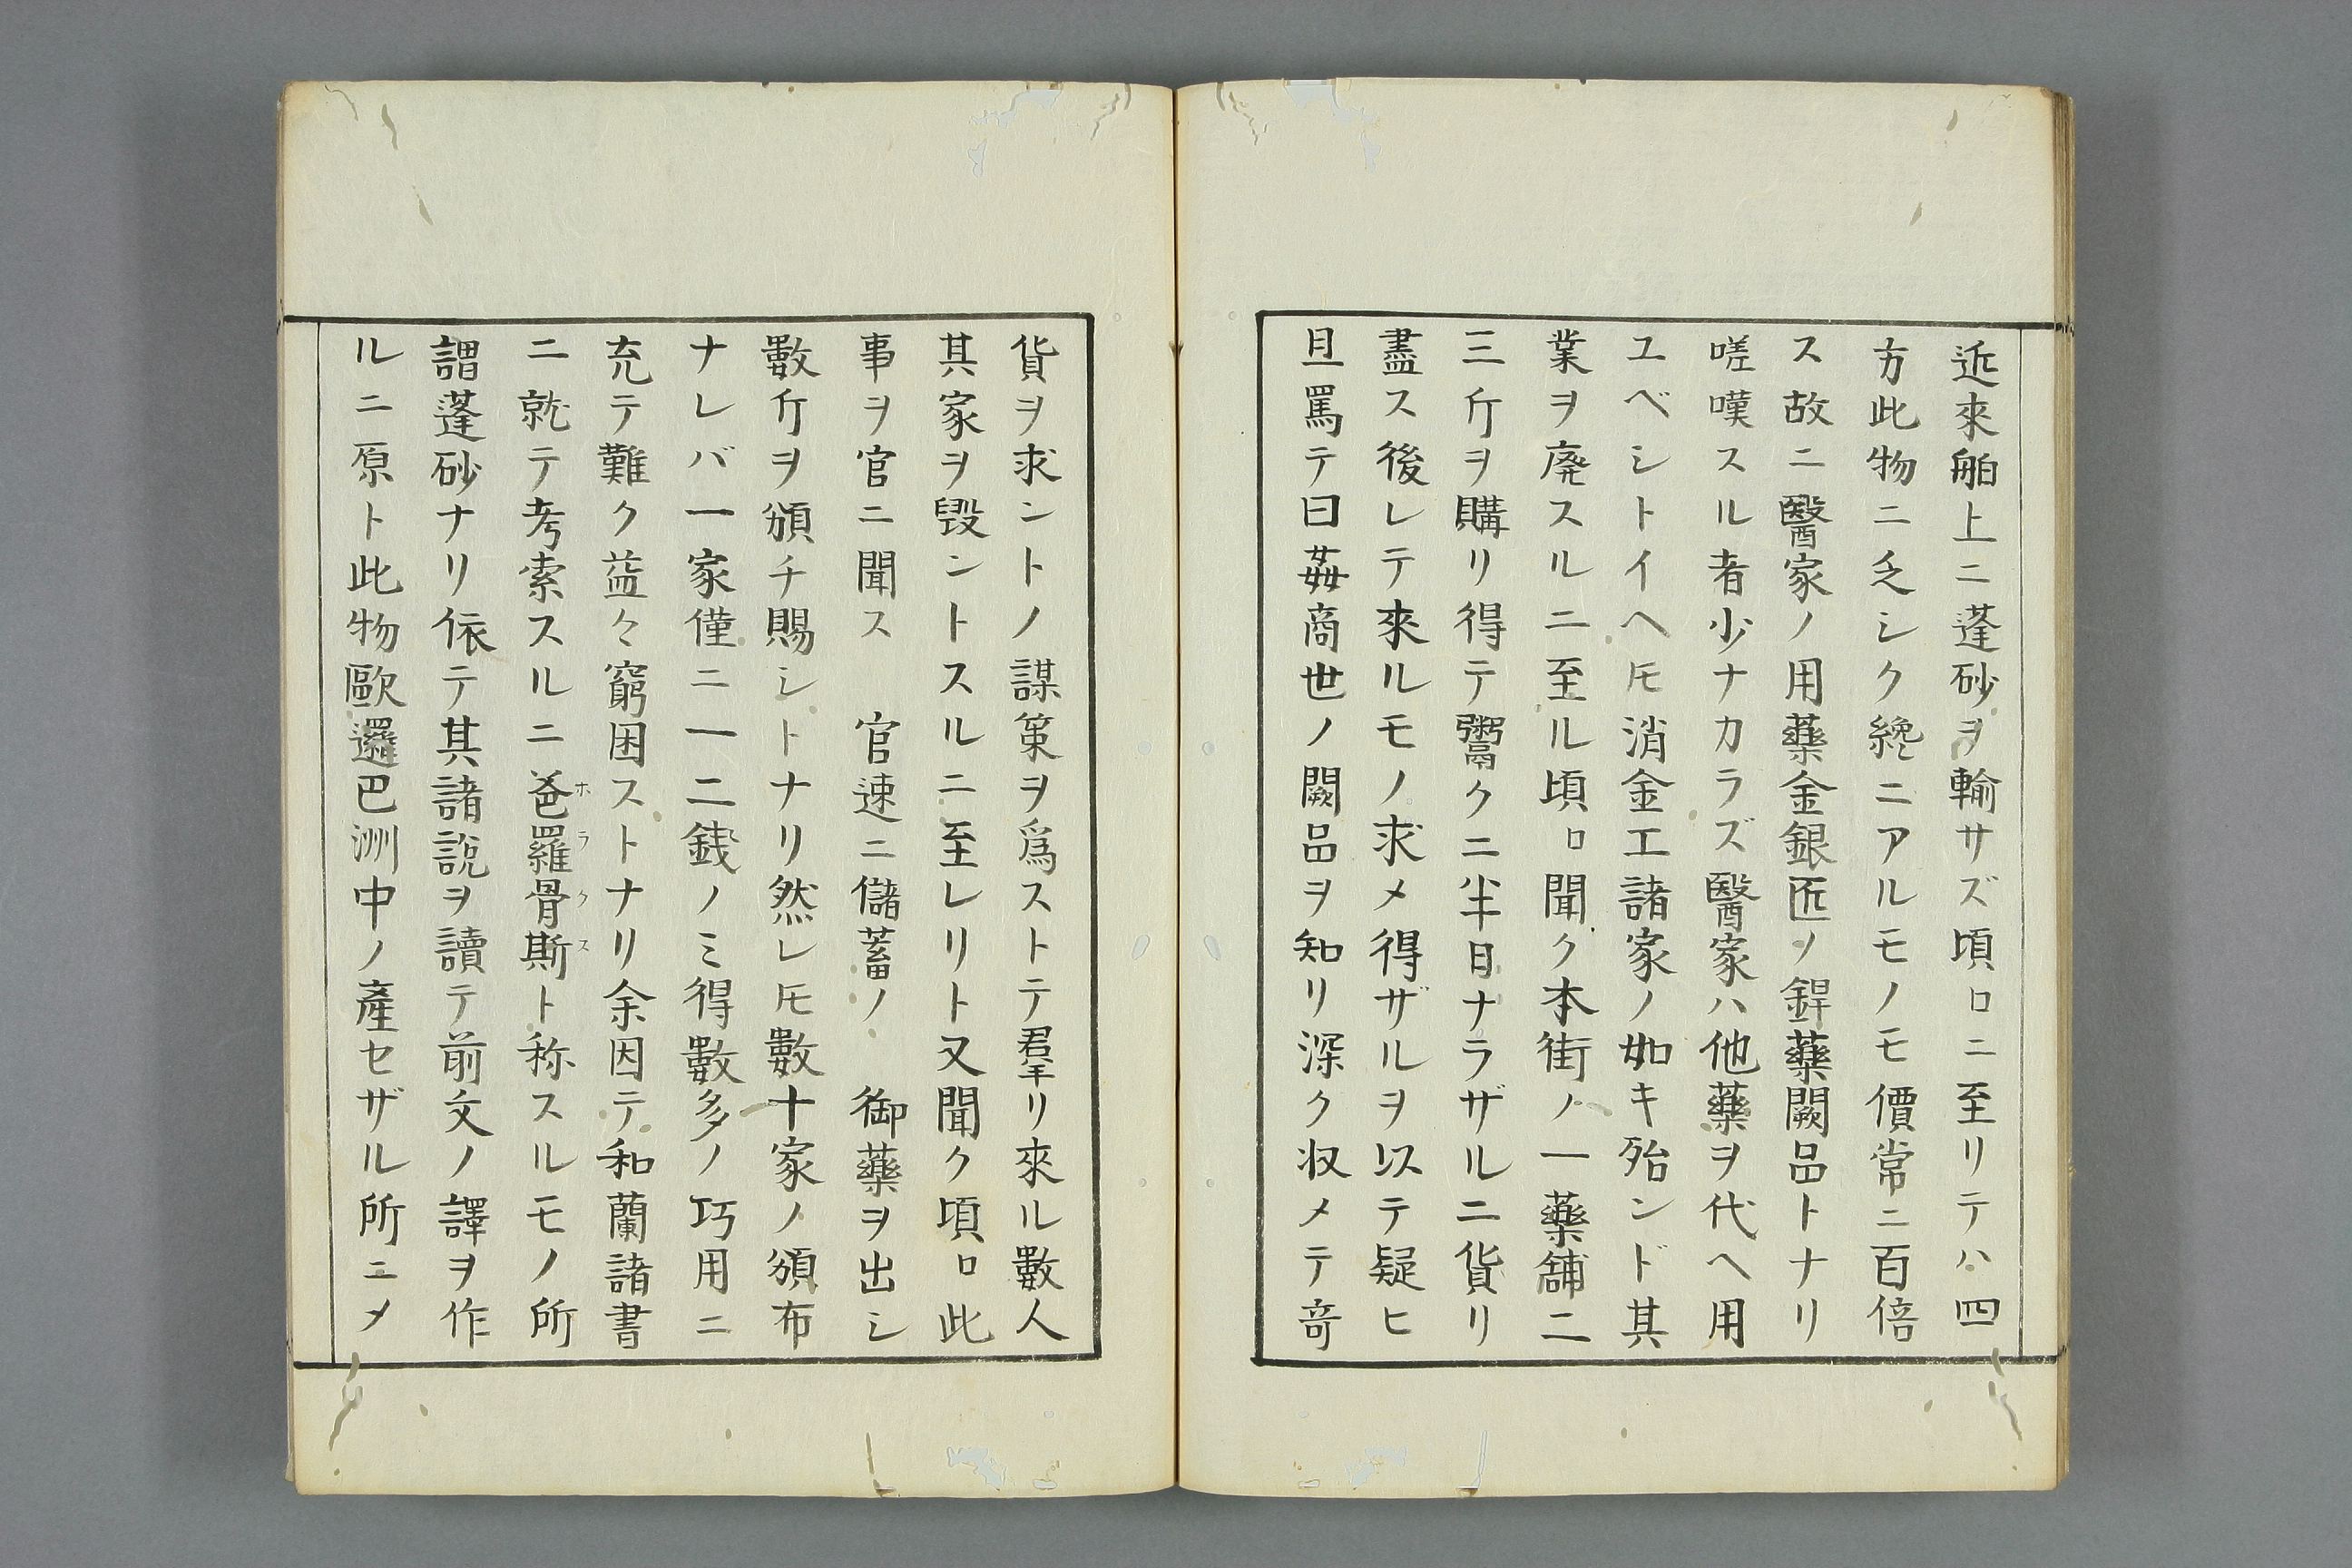 近來舶上ニ蓬砂ヲ輸サズ頃ロニ至リテハ四
方此物ニ乏シク纔ニアルモノモ價常ニ百倍
ス故ニ醫家ノ用藥金銀匠ノ銲藥闕品トナリ
嗟嘆スル者少ナカラズ醫家ハ他藥ヲ代ヘ用
ユベシトイヘ𪜈消金工諸家ノ如キ殆ンド其
業ヲ廃スルニ至ル頃ロ聞ク本街ノ一藥舗二
三斤ヲ購リ得テ鬻クニ半日ナラザルニ貨リ
盡ス後レテ來ルモノ求メ得ザルヲ以テ疑ヒ
且罵テ曰姦商世ノ闕品ヲ知リ深ク収メテ竒
貨ヲ求ントノ謀策ヲ爲ストテ羣リ來ル數人
其家ヲ毀ントスルニ至レリト又聞ク頃ロ此
事ヲ官ニ聞ス　官速ニ儲蓄ノ　御藥ヲ出シ
數斤ヲ頒チ賜シトナリ然レ𪜈數十家ノ頒布
ナレバ一家僅ニ一二銭ノミ得數多ノ巧用ニ
充テ難ク益々窮困ストナリ余因テ和蘭諸書
ニ就テ考索スルニ爸羅骨斯ト称スルモノ所
ホラクス
謂蓬砂ナリ依テ其諸説ヲ讀テ前文ノ譯ヲ作
ルニ原ト此物歐邏巴洲中ノ產セザル所ニメ